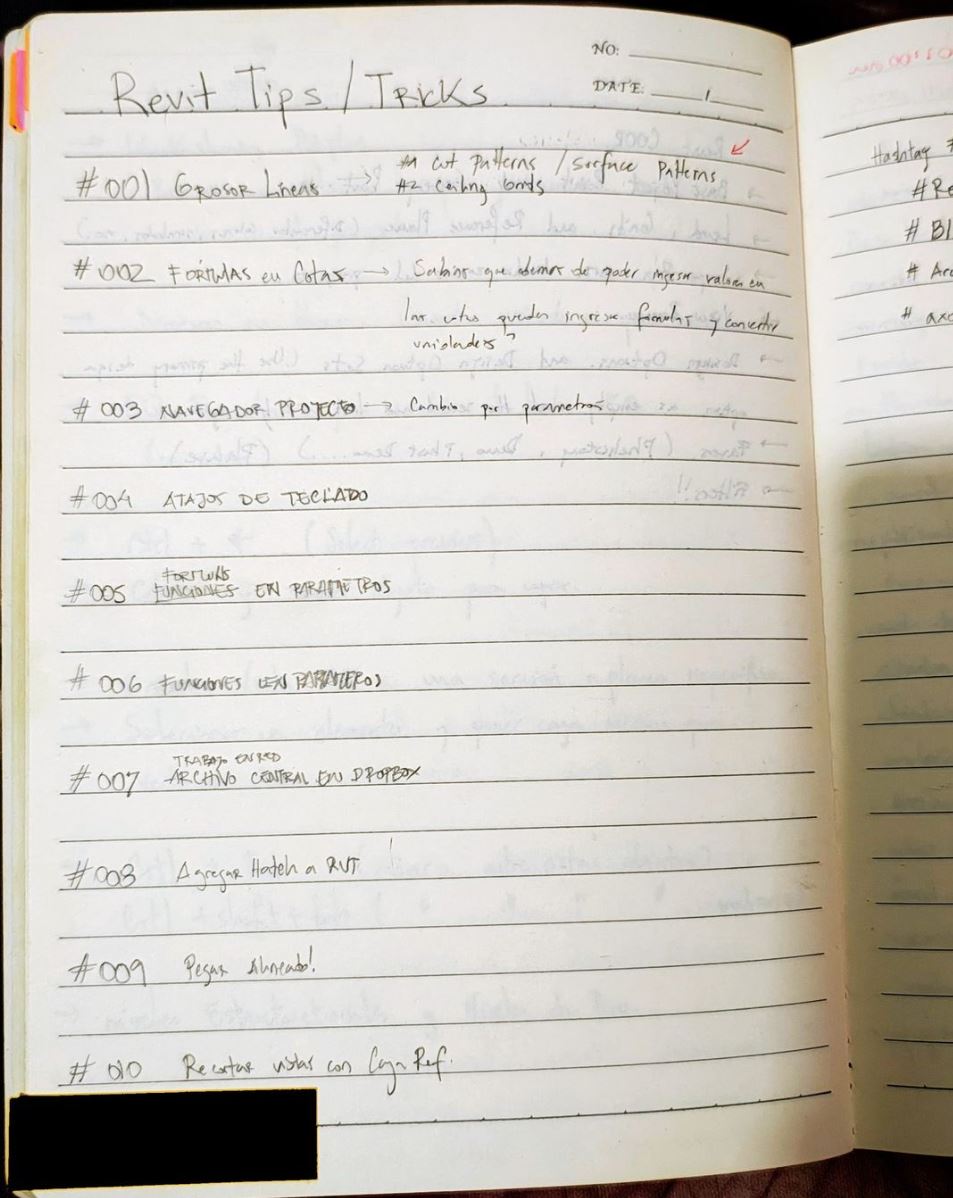 NO:
DATE: /
Revit Tips / Tricks
#1 Cut Patterns / Surface Patterns
#001 Grosor Lineas → #2 Ceiling Grids
#002 FÓRMULAS en Cotas → Sabias que ademas de poder ingresar valores en
las cotas puedes ingresar formulas y convertir
unidades?
#003 NAVEGADOR PROYECTO → Cambio por parametros
#004 ATAJOS DE TECLADO
FORMULAS
#005 FUNCIONES EN PARAMETROS
#006 FUNCIONES EN PARAMETROS
TRABAJO EN RED
#007 ARCHIVO CENTRAL EN DROPBOX
#008 Agregar Hatch a RVT
#009 Pegar Alineado!
#010 Recortar vistas con Caja Ref.
Hashtag #
#Re
# Bl
# Arc